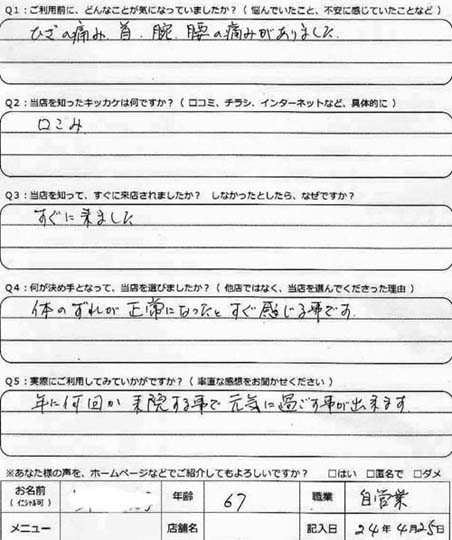 Q1：ご利用前に、どんなことが気になっていましたか？（ 悩んでいたこと、不安に感じていたことなど ）
ひざの痛み、首、腕、腰の痛みがありました。
Q2：当店を知ったキッカケは何ですか？（ 口コミ、チラシ、インターネットなど、具体的に ）
口ごみ
Q3：当店を知って、すぐに来店されましたか？　しなかったとしたら、なぜですか？
すぐに来ました
Q4：何が決め手となって、当店を選びましたか？（ 他店ではなく、当店を選んでくださった理由 ）
体のずれが正常になったとすぐ感じる事です.
Q5：実際にご利用してみていかがですか？（ 率直な感想をお聞かせください ）
年に何回か来院する事で元気に過ごす事が出来ます.
※あなた様の声を、ホームページなどでご紹介してもよろしいですか？　□はい　□匿名で　□ダメ
お名前（ イニシャル可 ）　年齢　67　職業　自営業
メニュー　店舗名　記入日　24年 4月25日